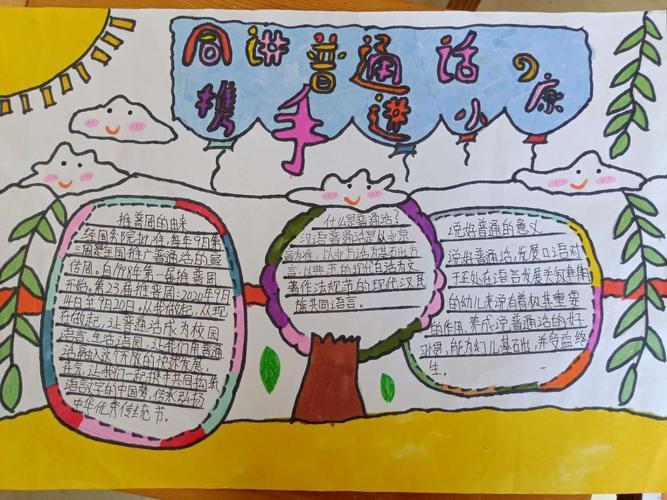 同讲普通话
携手进小康
推普周的由来
经国务院批准,每年9月第
三周是全国推广普通话的宣
传周。自1998年第一届推普周
开始。第23届推普周2020年9月
14日年9月20日。从我做起,从现
在做起,让普通话成为校园
语言、生活语言,让我们用普通
话融入这个开放的快速发展
社会,让我们一起携手共同构筑
语言文字的中国梦,传承弘扬
中华优秀传统节。
什么是普通话?
汉语普通话是以北京
语音为标准,以北方话为基本方
言,以典范的现代白话文
著作为规范的现代汉民
族共同语言。
说好普通的意义
说好普通话,发展口语对
于正处在语言发展关键期
的幼儿来说有着极其重要
的作用,养成说普通话的好
习惯,能为幼儿基础,并受益终
生。